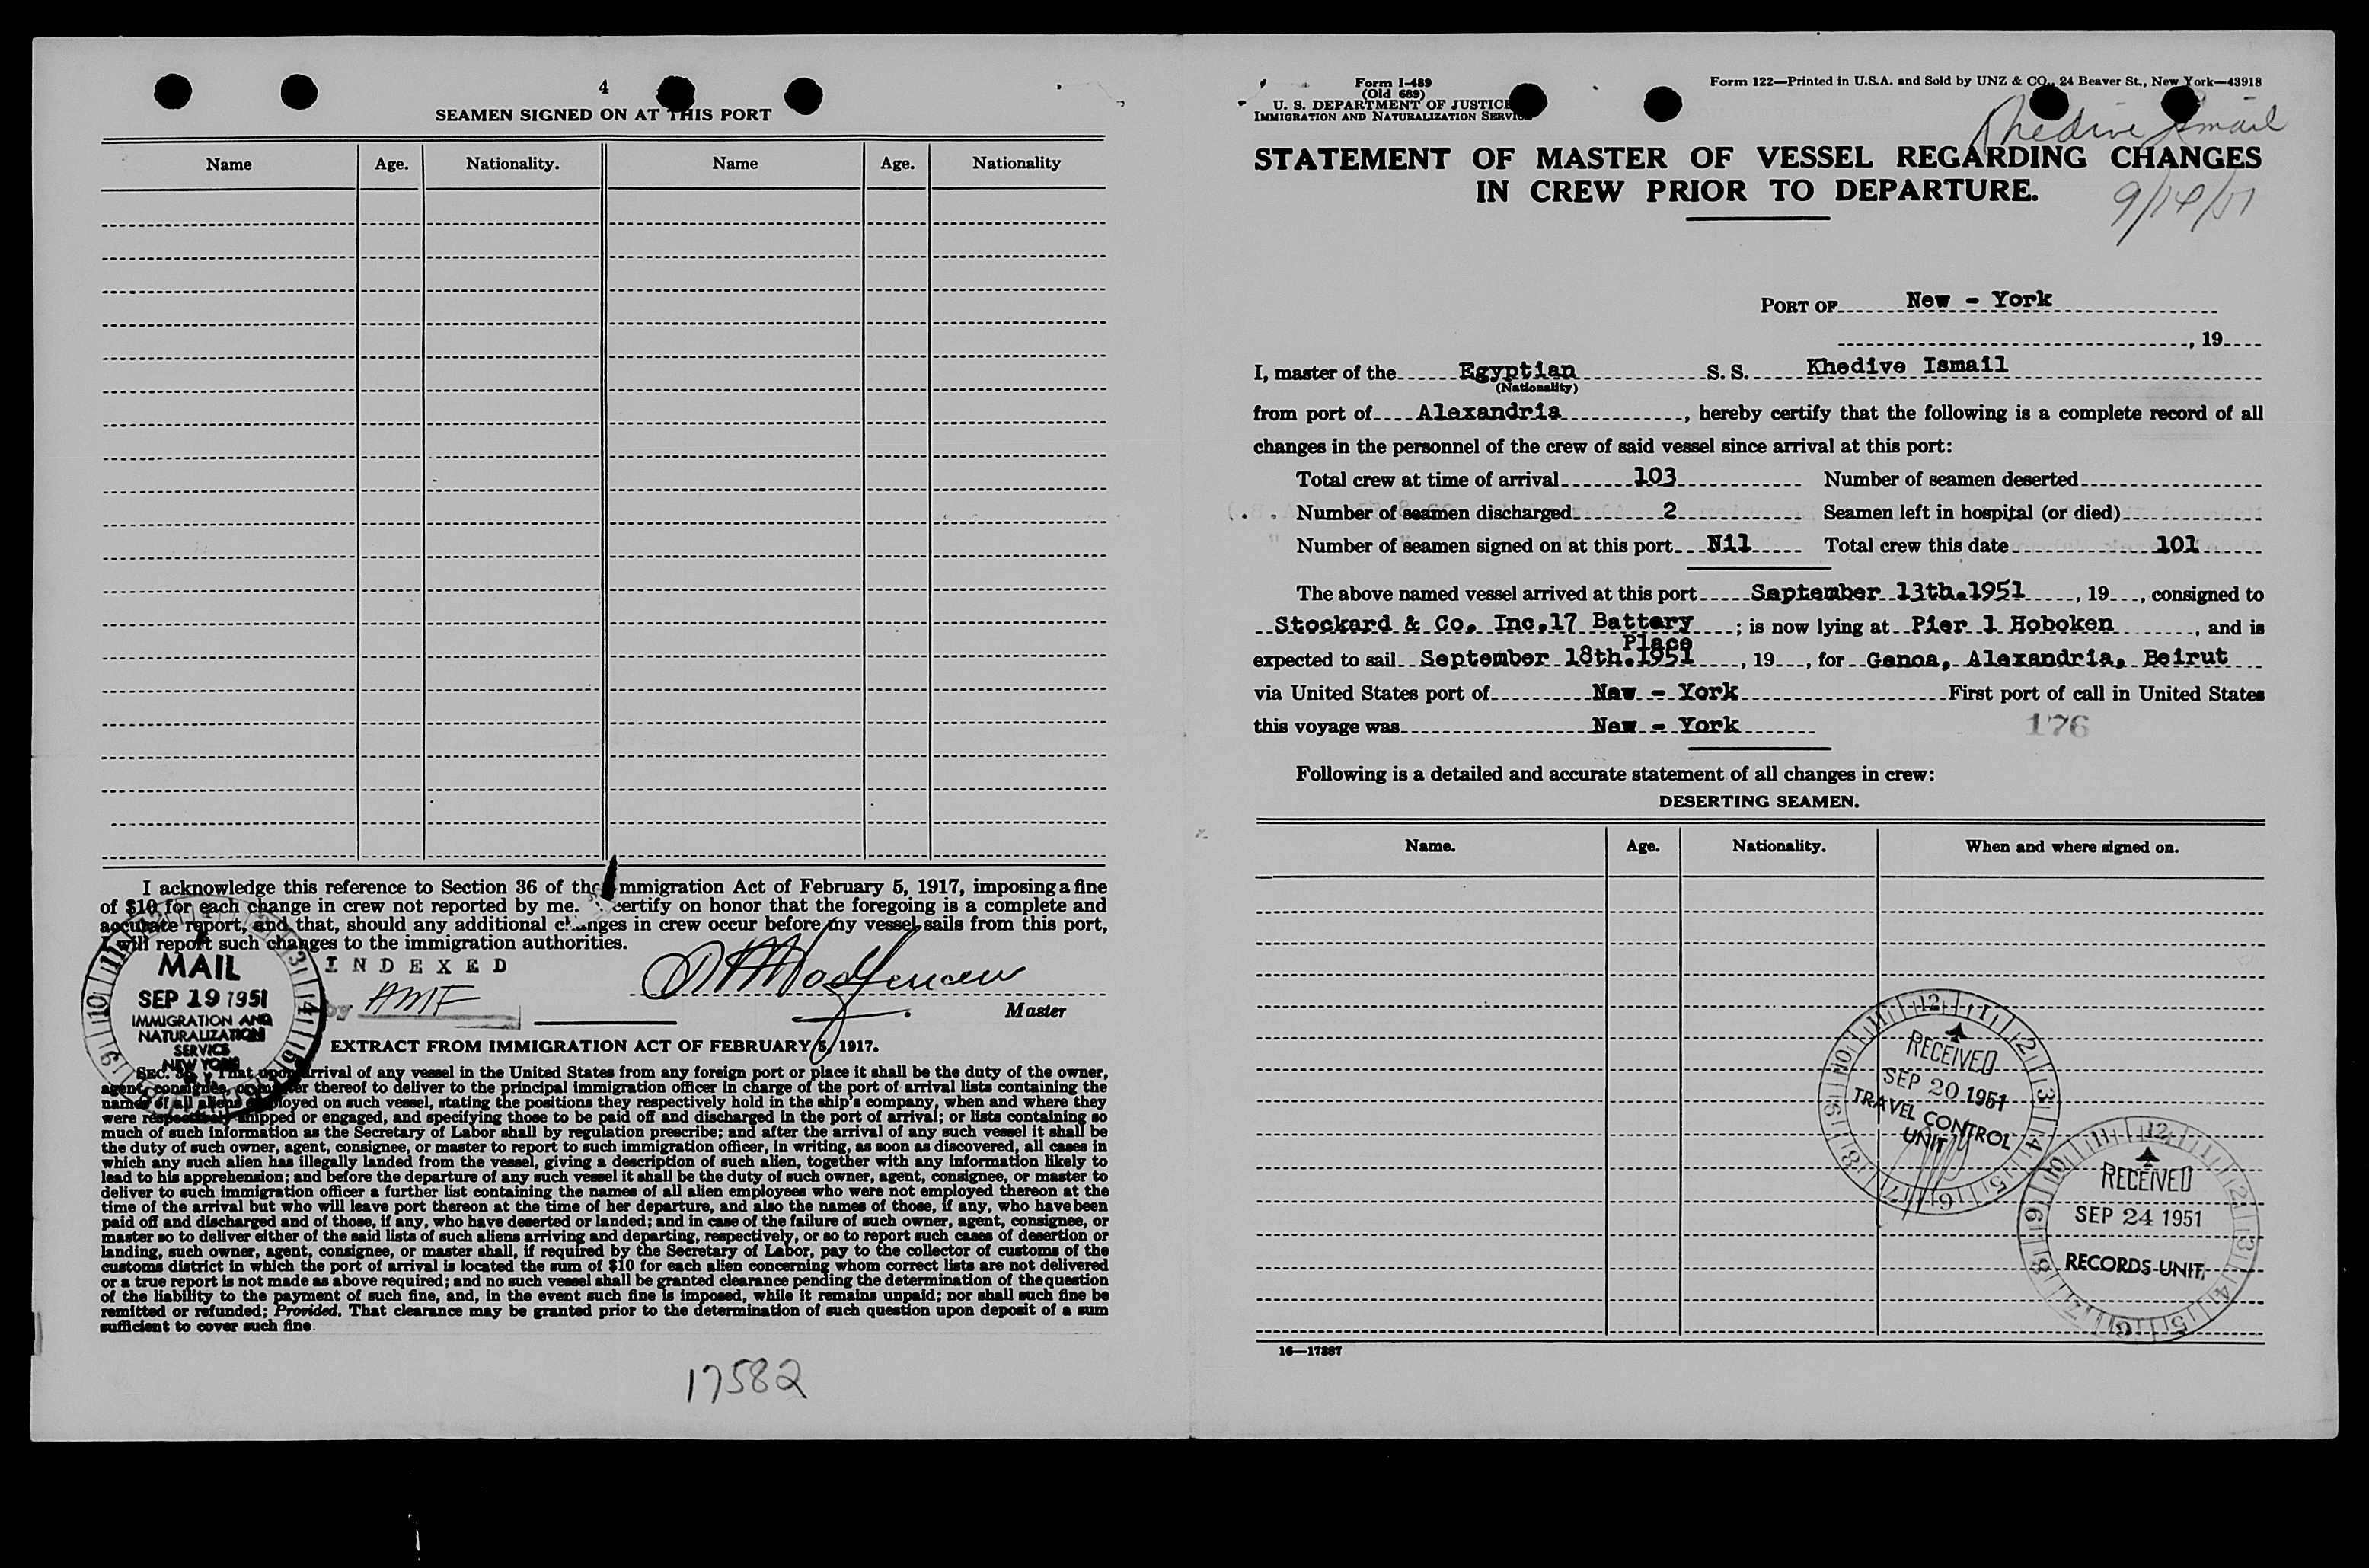 4
SEAMEN SIGNED ON AT THIS PORT
Name Age. Nationality. Name Age. Nationality
I acknowledge this reference to Section 36 of the mmigration Act of February 5, 1917, imposing a fine
of $10 for each change in crew not reported by me. certify on honor that the foregoing is a complete and
accurate report, and that, should any additional changes in crew occur before my vessel sails from this port,
I will report such changes to the immigration authorities.
MAIL
SEP 19 1951
IMMIGRATION AND
NATURALIZATION
SERVICE
NEW YORK
INDEXED
by AMF
Master
EXTRACT FROM IMMIGRATION ACT OF FEBRUARY 5, 1917.
SEC. 36. That upon arrival of any vessel in the United States from any foreign port or place it shall be the duty of the owner,
agent, consignee, or master thereof to deliver to the principal immigration officer in charge of the port of arrival lists containing the
names of all aliens employed on such vessel, stating the positions they respectively hold in the ship's company, when and where they
were respectively shipped or engaged, and specifying those to be paid off and discharged in the port of arrival; or lists containing so
much of such information as the Secretary of Labor shall by regulation prescribe; and after the arrival of any such vessel it shall be
the duty of such owner, agent, consignee, or master to report to such immigration officer, in writing, as soon as discovered, all cases in
which any such alien has illegally landed from the vessel, giving a description of such alien, together with any information likely to
lead to his apprehension; and before the departure of any such vessel it shall be the duty of such owner, agent, consignee, or master to
deliver to such immigration officer a further list containing the names of all alien employees who were not employed thereon at the
time of the arrival but who will leave port thereon at the time of her departure, and also the names of those, if any, who have been
paid off and discharged and of those, if any, who have deserted or landed; and in case of the failure of such owner, agent, consignee, or
master so to deliver either of the said lists of such aliens arriving and departing, respectively, or so to report such cases of desertion or
landing, such owner, agent, consignee, or master shall, if required by the Secretary of Labor, pay to the collector of customs of the
customs district in which the port of arrival is located the sum of $10 for each alien concerning whom correct lists are not delivered
or a true report is not made as above required; and no such vessel shall be granted clearance pending the determination of the question
of the liability to the payment of such fine, and, in the event such fine is imposed, while it remains unpaid; nor shall such fine be
remitted or refunded; Provided, That clearance may be granted prior to the determination of such question upon deposit of a sum
sufficient to cover such fine.
17582
Form I-489
(Old 689)
U. S. DEPARTMENT OF JUSTICE
IMMIGRATION AND NATURALIZATION SERVICE
Form 122—Printed in U.S.A. and Sold by UNZ & CO., 24 Beaver St., New York—43918
Khedive Ismail
STATEMENT OF MASTER OF VESSEL REGARDING CHANGES
IN CREW PRIOR TO DEPARTURE.
9/14/51
PORT OF New - York
, 19
I, master of the Egyptian S. S. Khedive Ismail
(Nationality)
from port of Alexandria, hereby certify that the following is a complete record of all
changes in the personnel of the crew of said vessel since arrival at this port:
Total crew at time of arrival 103 Number of seamen deserted
Number of seamen discharged 2 Seamen left in hospital (or died)
Number of seamen signed on at this port Nil Total crew this date 101
The above named vessel arrived at this port September 13th.1951, 19, consigned to
Stockard & Co. Inc.17 Battery ; is now lying at Pier 1 Hoboken, and is
Place
expected to sail September 18th.1951, 19, for Genoa, Alexandria, Beirut
via United States port of New - York First port of call in United States
this voyage was New - York
176
Following is a detailed and accurate statement of all changes in crew:
DESERTING SEAMEN.
Name. Age. Nationality. When and where signed on.
RECEIVED
SEP 20 1951
TRAVEL CONTROL
UNIT
RECEIVED
SEP 24 1951
RECORDS UNIT
16—17887